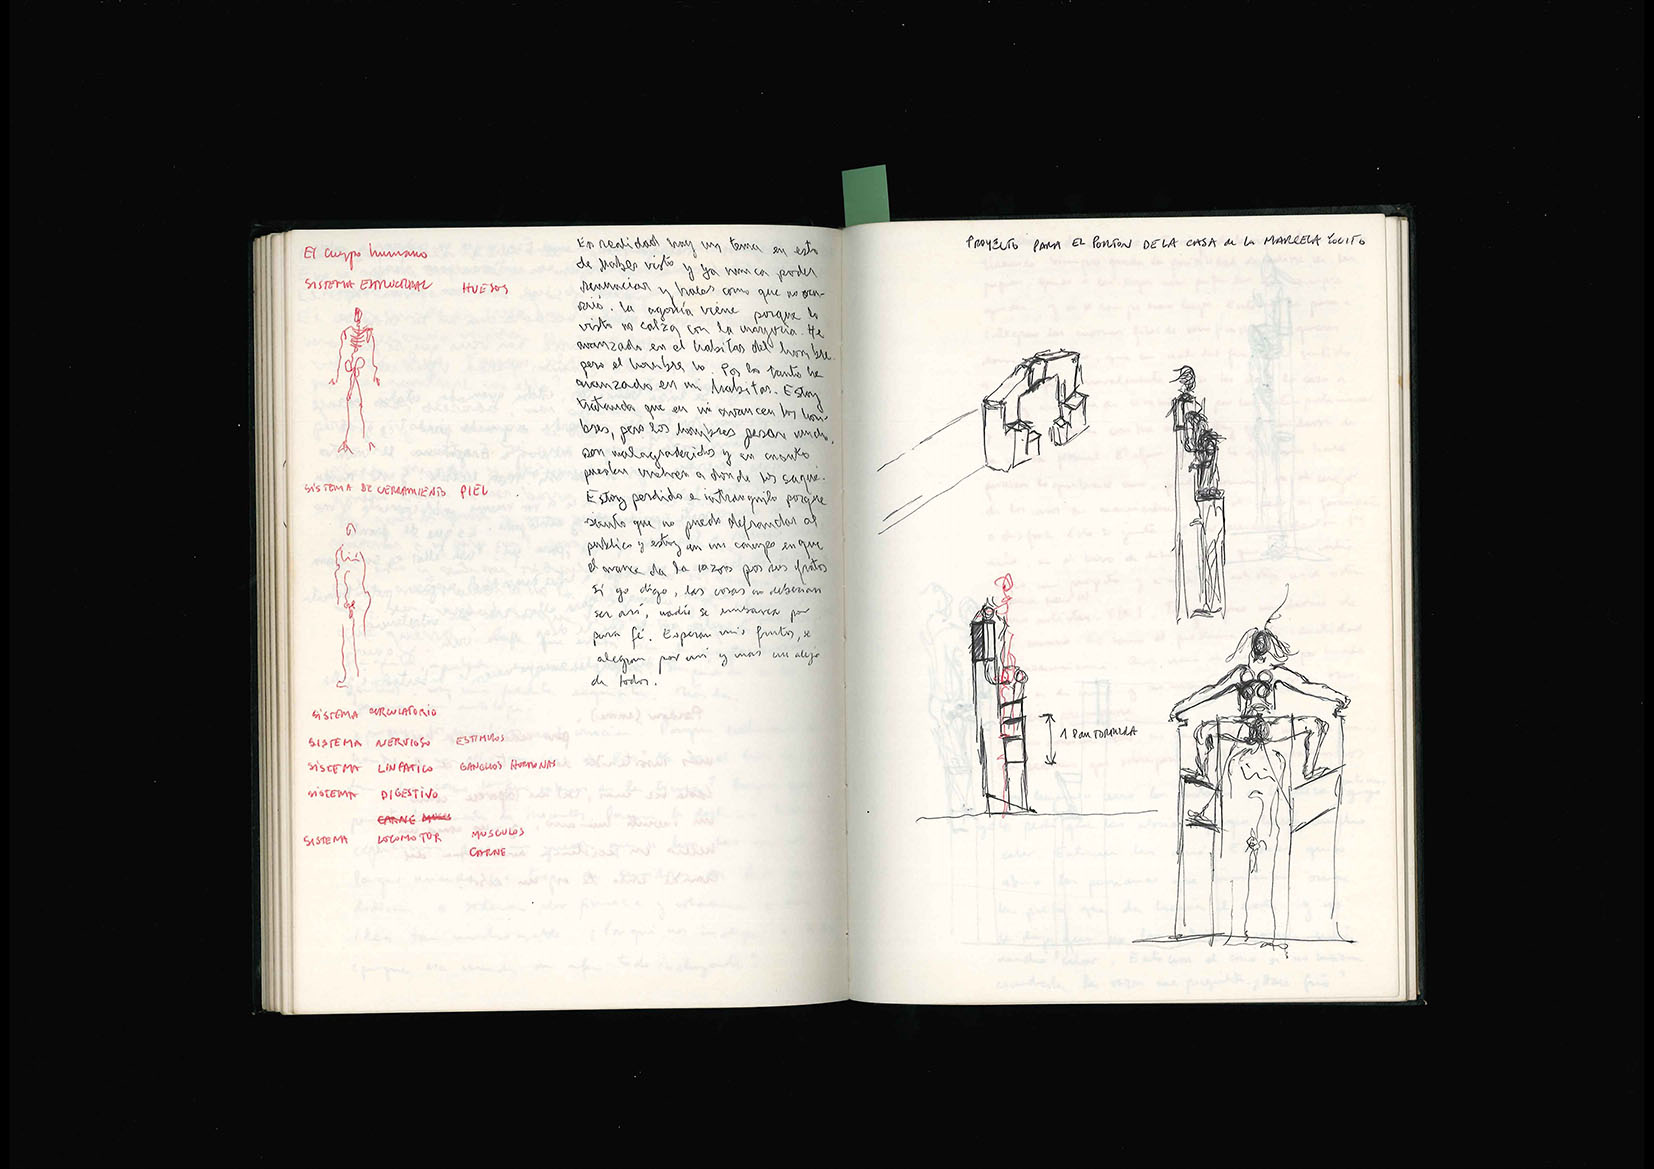 El cuerpo humano
SISTEMA ESTRUCTURAL HUESOS
SISTEMA DE CERRAMIENTO PIEL
SISTEMA CIRCULATORIO
SISTEMA NERVIOSO ESTIMULOS
SISTEMA LINFATICO GANGLIOS HORMONAS
SISTEMA DIGESTIVO
CARNE
SISTEMA LOCOMOTOR MUSCULOS
CARNE
En realidad hay un tema en esto
de haber visto y ya nunca poder
renunciar y hacer como que no ocu-
rrió. La agonía viene porque lo
visto no calza con la mayoría. He
avanzado en el habitar del hombre
pero el hombre no. Por lo tanto he
avanzado en mi habitar. Estoy
tratando que en mi avancen los hom-
bres, pero los hombres pesan mucho,
son malagradecidos y en cuanto
pueden vuelven a donde los saqué.
Estoy perdido e intranquilo porque
siento que no puedo defraudar al
publico y estoy en un campo en que
el avance da la razon por sus frutos
Si yo digo, las cosas no deberian
ser así, nadie se embarca por
pura fé. Esperan mis frutos, se
alegran por mi y mas me alejo
de todos.
PROYECTO PARA EL PORTON DE LA CASA de la MARCELA
1 PANTORRILLA